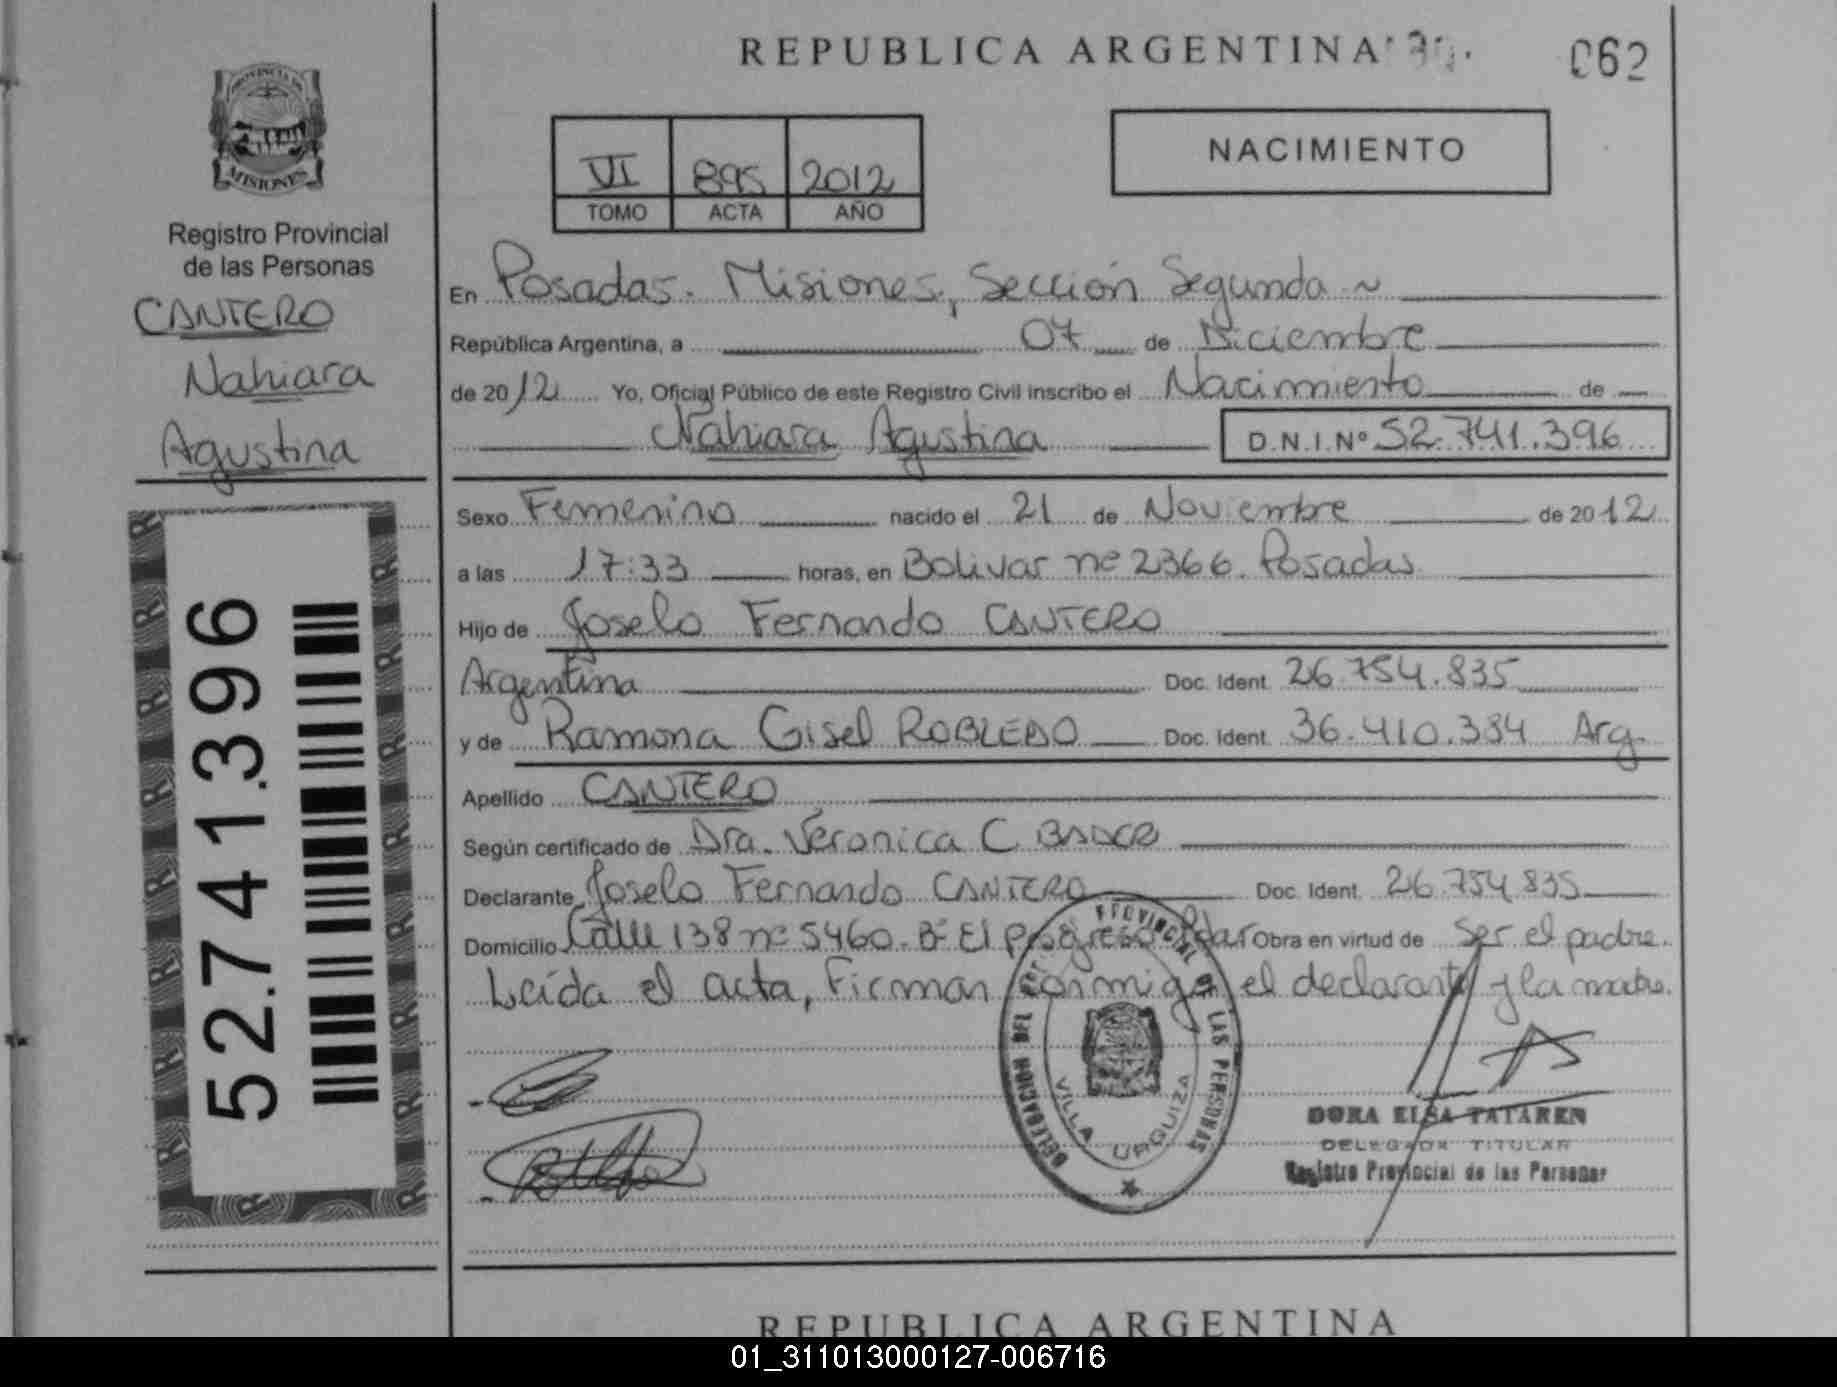 REPUBLICA ARGENTINA
062
PROVINCIA DE
MISIONES
Registro Provincial
de las Personas
CANTERO
Nahiara
Agustina
52.741.396
NACIMIENTO
VI 895 2012
TOMO ACTA AÑO
En Posadas. Misiones, Sección Segunda
República Argentina, a 07 de Diciembre
de 2012 Yo, Oficial Público de este Registro Civil inscribo el Nacimiento de
Nahiara Agustina D.N.I.Nº 52.741.396
Sexo Femenino nacido el 21 de Noviembre de 2012
a las 17:33 horas, en Bolivar nº 2366. Posadas
Hijo de Joselo Fernando CANTERO
Argentina Doc. Ident. 26.754.835
y de Ramona Gisel ROBLEDO Doc. Ident. 36.410.334 Arg.
Apellido CANTERO
Según certificado de Dra. Veronica C.
Declarante Joselo Fernando CANTERO Doc. Ident. 26.754.835
Domicilio Calle 138 nº 5460. Bº El progreso Obra en virtud de Ser el padre.
Leída el acta, Firman conmigo el declarante y la madre.
DELEGACION DEL REGISTRO PROVINCIAL DE LAS PERSONAS
VILLA URQUIZA
DORA ELSA TATAREN
DELEGADA TITULAR
Registro Provincial de las Personas
REPUBLICA ARGENTINA
01_311013000127-006716